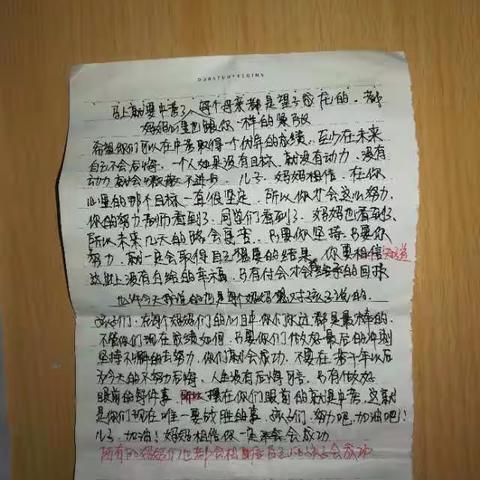 马上就要中考了，每个母亲都是望子成龙的。都
妈妈们也跟你一样的紧张
希望你们可以在中考取得一个优异的成绩，至少在未来
自己不会后悔。一个人如果没有目标，就没有动力，没有
动力就会 不进步。儿子，妈妈相信，在你
心里的那个目标一直很坚定，所以你才会这么努力，
你的努力老师看到了，同学们看到了，妈妈也看到了，
所以未来几天的路会更苦，只要你坚持，只要你
努力，就一定会取得自己想要的结果。你要相信知道
这世上没有白给的幸福，只有付出才会 来的回报
也许今天我说的也是每个妈妈想对孩子说的。
孩子们：在每个妈妈们的心目中，你们永远都是最棒的。
不管你们现在成绩如何，只要你们做好最后的冲刺
坚持不懈的去努力，你们就会成功，不要在若干年以后
为今天的不努力后悔，人生没有后悔药，只有做好
眼前的每件事，现在你们眼前的就是中考，这就
是你们现在唯一要战胜的事，孩子们，努力吧，加油吧！
儿子，加油！妈妈相信你一定会成功
所有的妈妈们也都会相信自己的孩子会成功